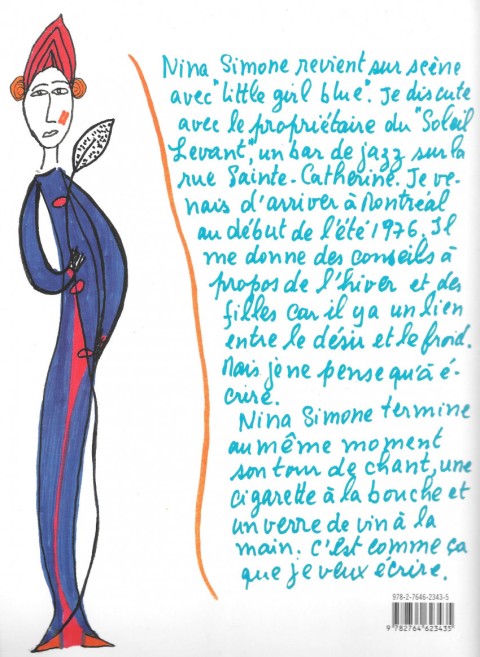 Nina Simone revient sur scène
avec "little girl blue". Je discute
avec le propriétaire du "Soleil
Levant", un bar de jazz sur la
rue Sainte-Catherine. Je ve-
nais d'arriver à Montréal
au début de l'été 1976. Il
me donne des conseils à
propos de l'hiver et des
filles car il y a un lien
entre le désir et le froid.
Mais je ne pense qu'à é-
crire.
Nina Simone termine
au même moment
son tour de chant, une
cigarette à la bouche et
un verre de vin à la
main. C'est comme ça
que je veux écrire.
978-2-7646-2343-5
9 782764 623435